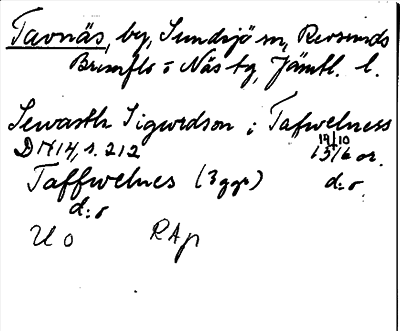 Tavnäs, by, Sundsjö sn, Revsunds
Brunflo o Näs tg, Jämtl. l.
Sewasth Sigwrdson i Tafwelness
DN14, s. 212 19/10 1316 or.
Taffwelnes (3 ggr) d:o
d:o
U O RAp